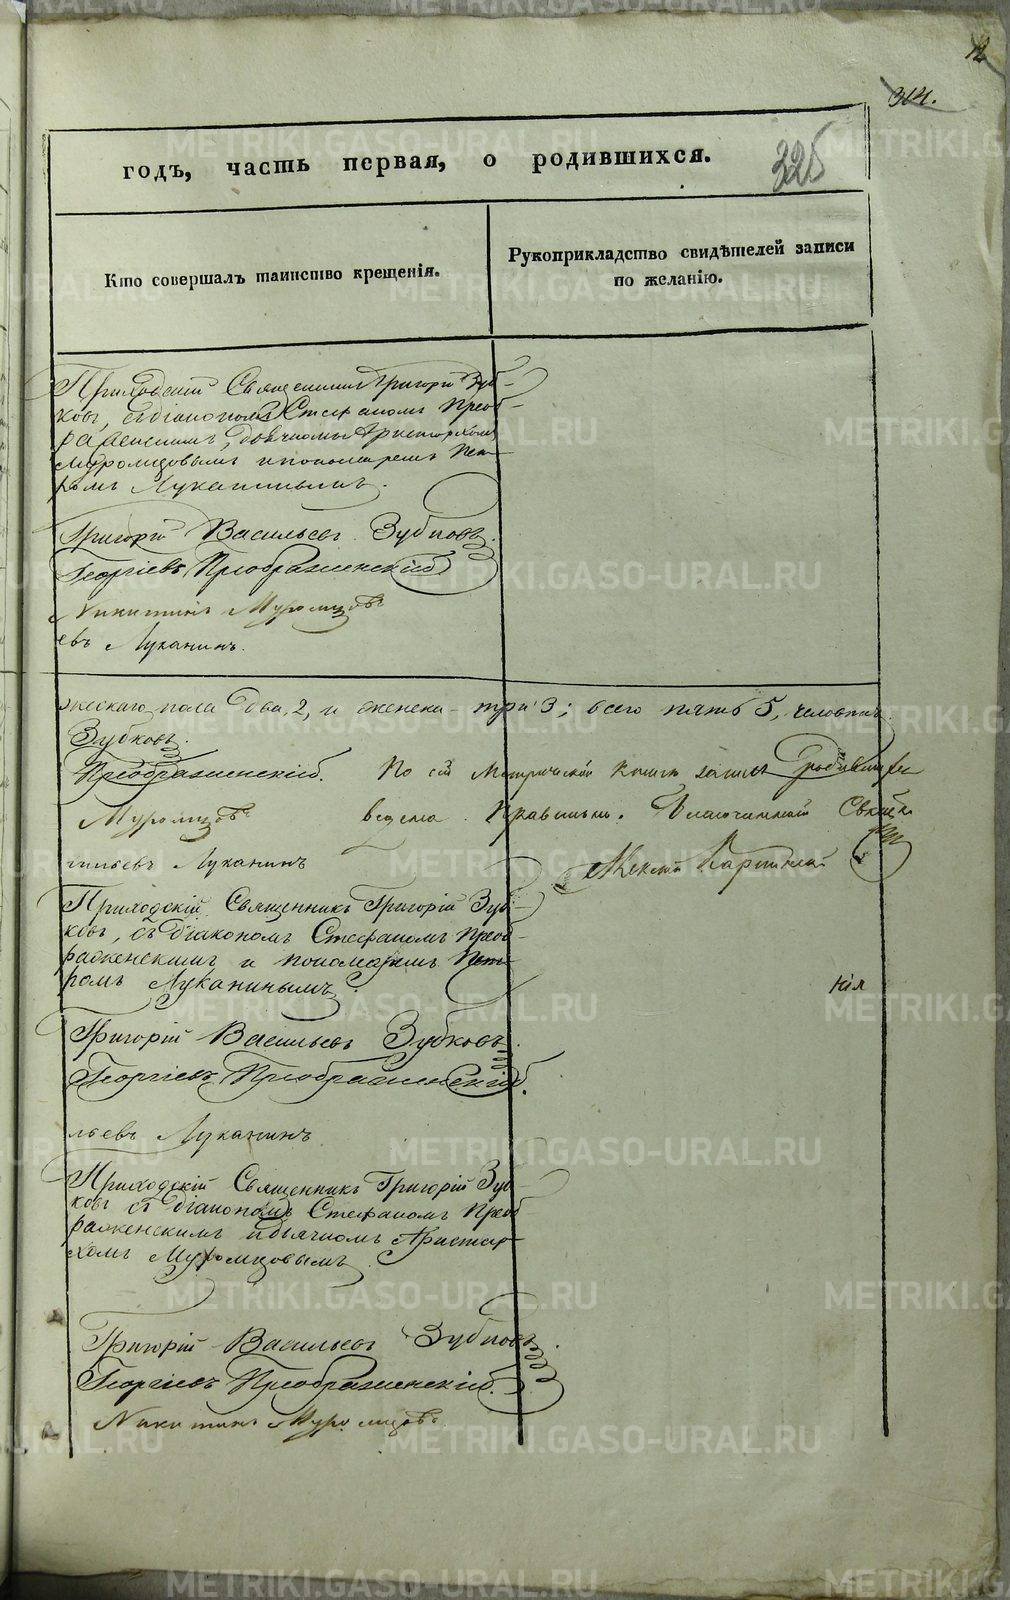 12
314.
325
годъ, часть первая, о родившихся.
Кто совершалъ таинство крещенія.
Рукоприкладство свидѣтелей записи
по желанію.
Приходскій Священникъ Григорій Зуб-
ковъ, съ діакономъ Стефаномъ Преоб-
раженскимъ, дьячкомъ Аристархомъ
Муромцовымъ и пономаремъ Пет-
ромъ Луканинымъ.
Григорій Васильевъ Зубковъ.
Георгіевъ Преображенскій
Никитинъ Муромцовъ
евъ Луканинъ.
жескаго пола два, 2, и женска три 3; всего пять 5, человѣкъ.
Зубковъ.
Преображенскій. По сей Метрической книги запись
Муромцовъ ведена Правильно. Благочинный
ильевъ Луканинъ
Приходскій Священникъ Григорій Зуб-
ковъ, съ діакономъ Стефаномъ Преоб-
раженскимъ и пономаремъ Пет-
ромъ Луканинымъ.
нія
Григорій Васильевъ Зубковъ.
Георгіевъ Преображенскій.
льевъ Луканинъ
Приходскій Священникъ Григорій Зуб-
ковъ съ діакономъ Стефаномъ Преоб-
раженскимъ и дьячкомъ Аристар-
хомъ Муромцовымъ.
Григорій Васильевъ Зубковъ.
Георгіевъ Преображенскій.
Никитинъ Муромцовъ
METRIKI.GASO-URAL.RU